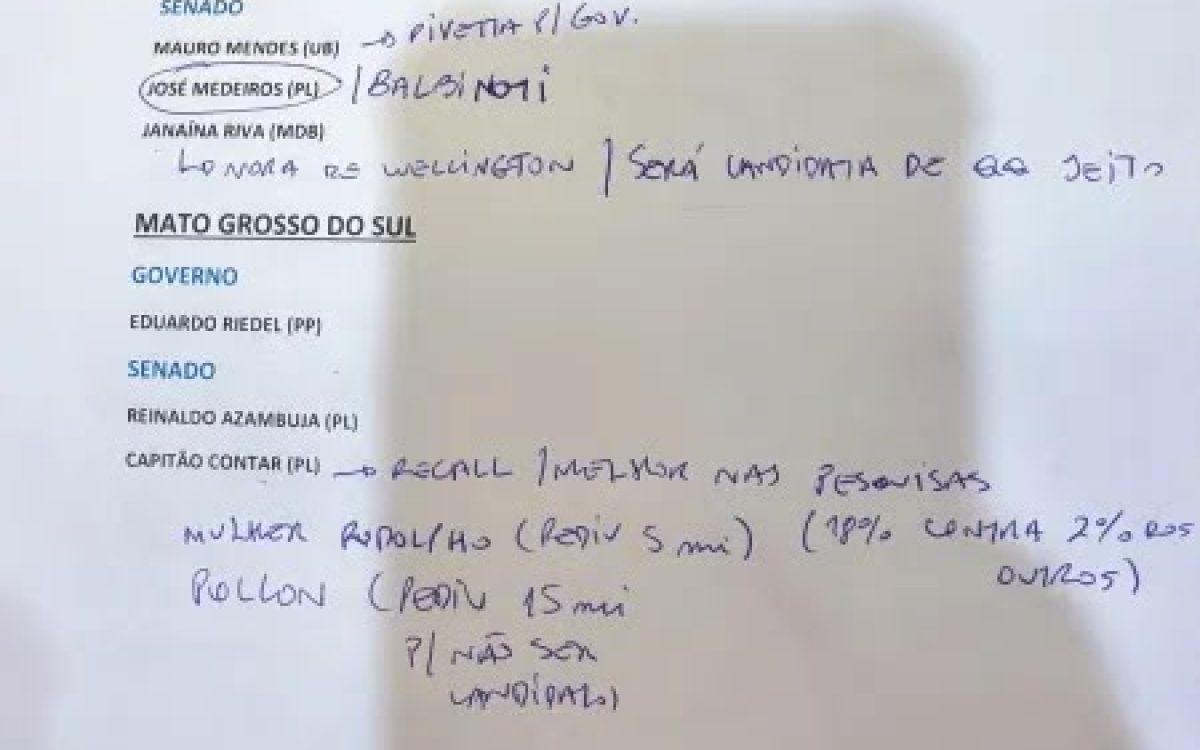 SENADO
MAURO MENDES (UB) → PIVETTA P/ GOV.
JOSÉ MEDEIROS (PL) / BALBINOTI
JANAÍNA RIVA (MDB)
NORA DE WELLINGTON / SERÁ CANDIDATA DE QQ JEITO
MATO GROSSO DO SUL
GOVERNO
EDUARDO RIEDEL (PP)
SENADO
REINALDO AZAMBUJA (PL)
CAPITÃO CONTAR (PL) → RECALL / MELHOR NAS PESQUISAS
MULHER RODOLPHO (PEDIU 5 mi) (18% CONTRA 2% DOS
OUTROS)
POLLON (PEDIU 15 mi
P/ NÃO SER
CANDIDATO)